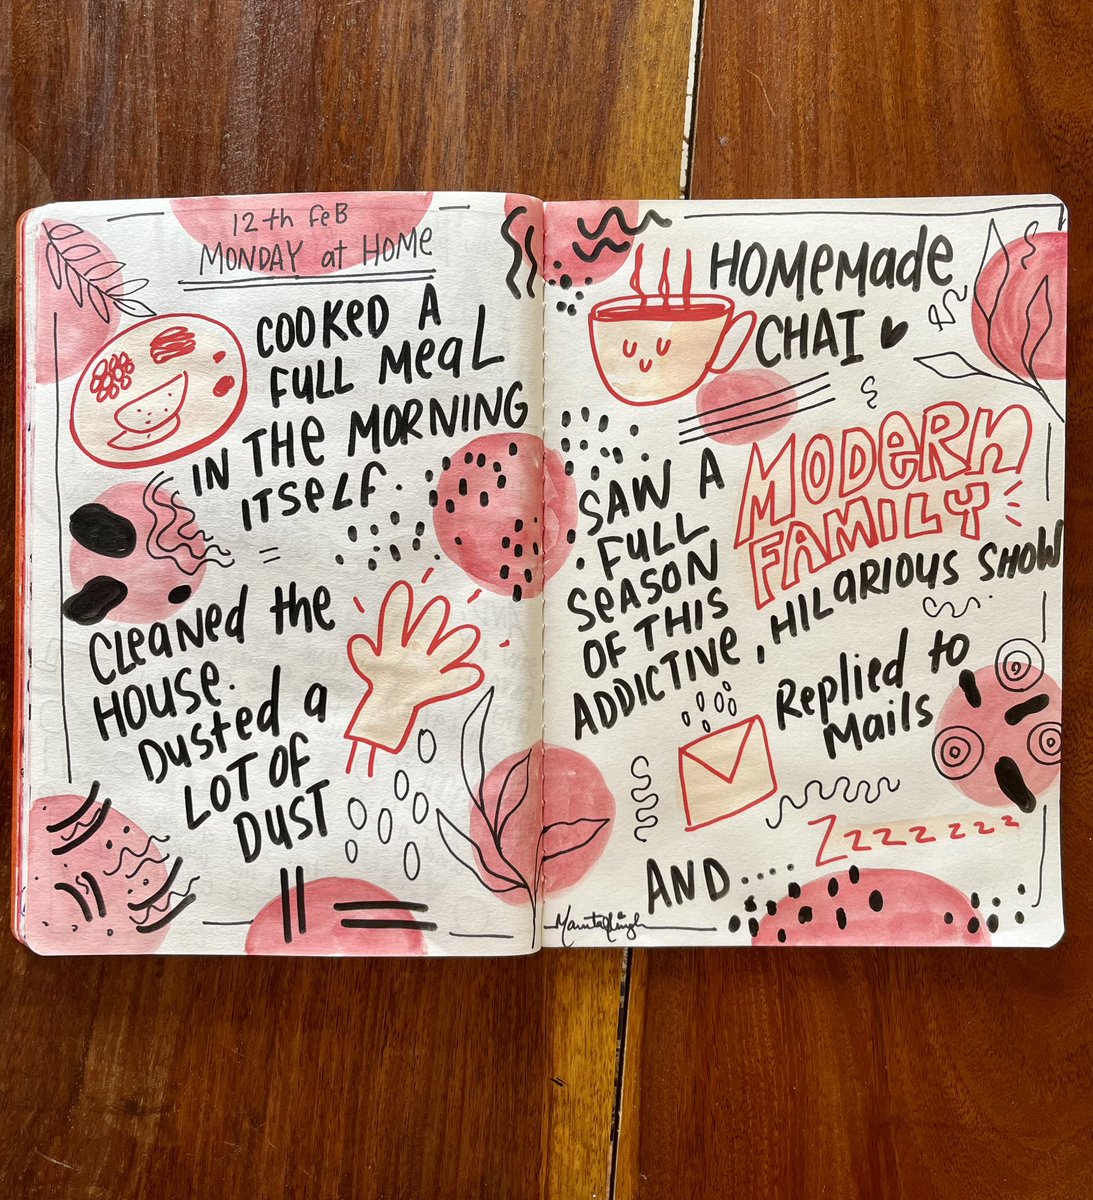 12th feB
MONDAY at HOME
COOKED A
FULL MeaL
IN THe MORNING
ITSeLF.
CLeaNed the
HOUSe.
Dusted a
LOT OF
DUST
HOMeMaDe
CHAI
SAW A
FULL
SeASON
OF THIS
ADDICTIVe, HILaRIOUS SHOW
MODeRn
FAMILY
RepLied to
MaiLs
AND....
Zzzzzzz